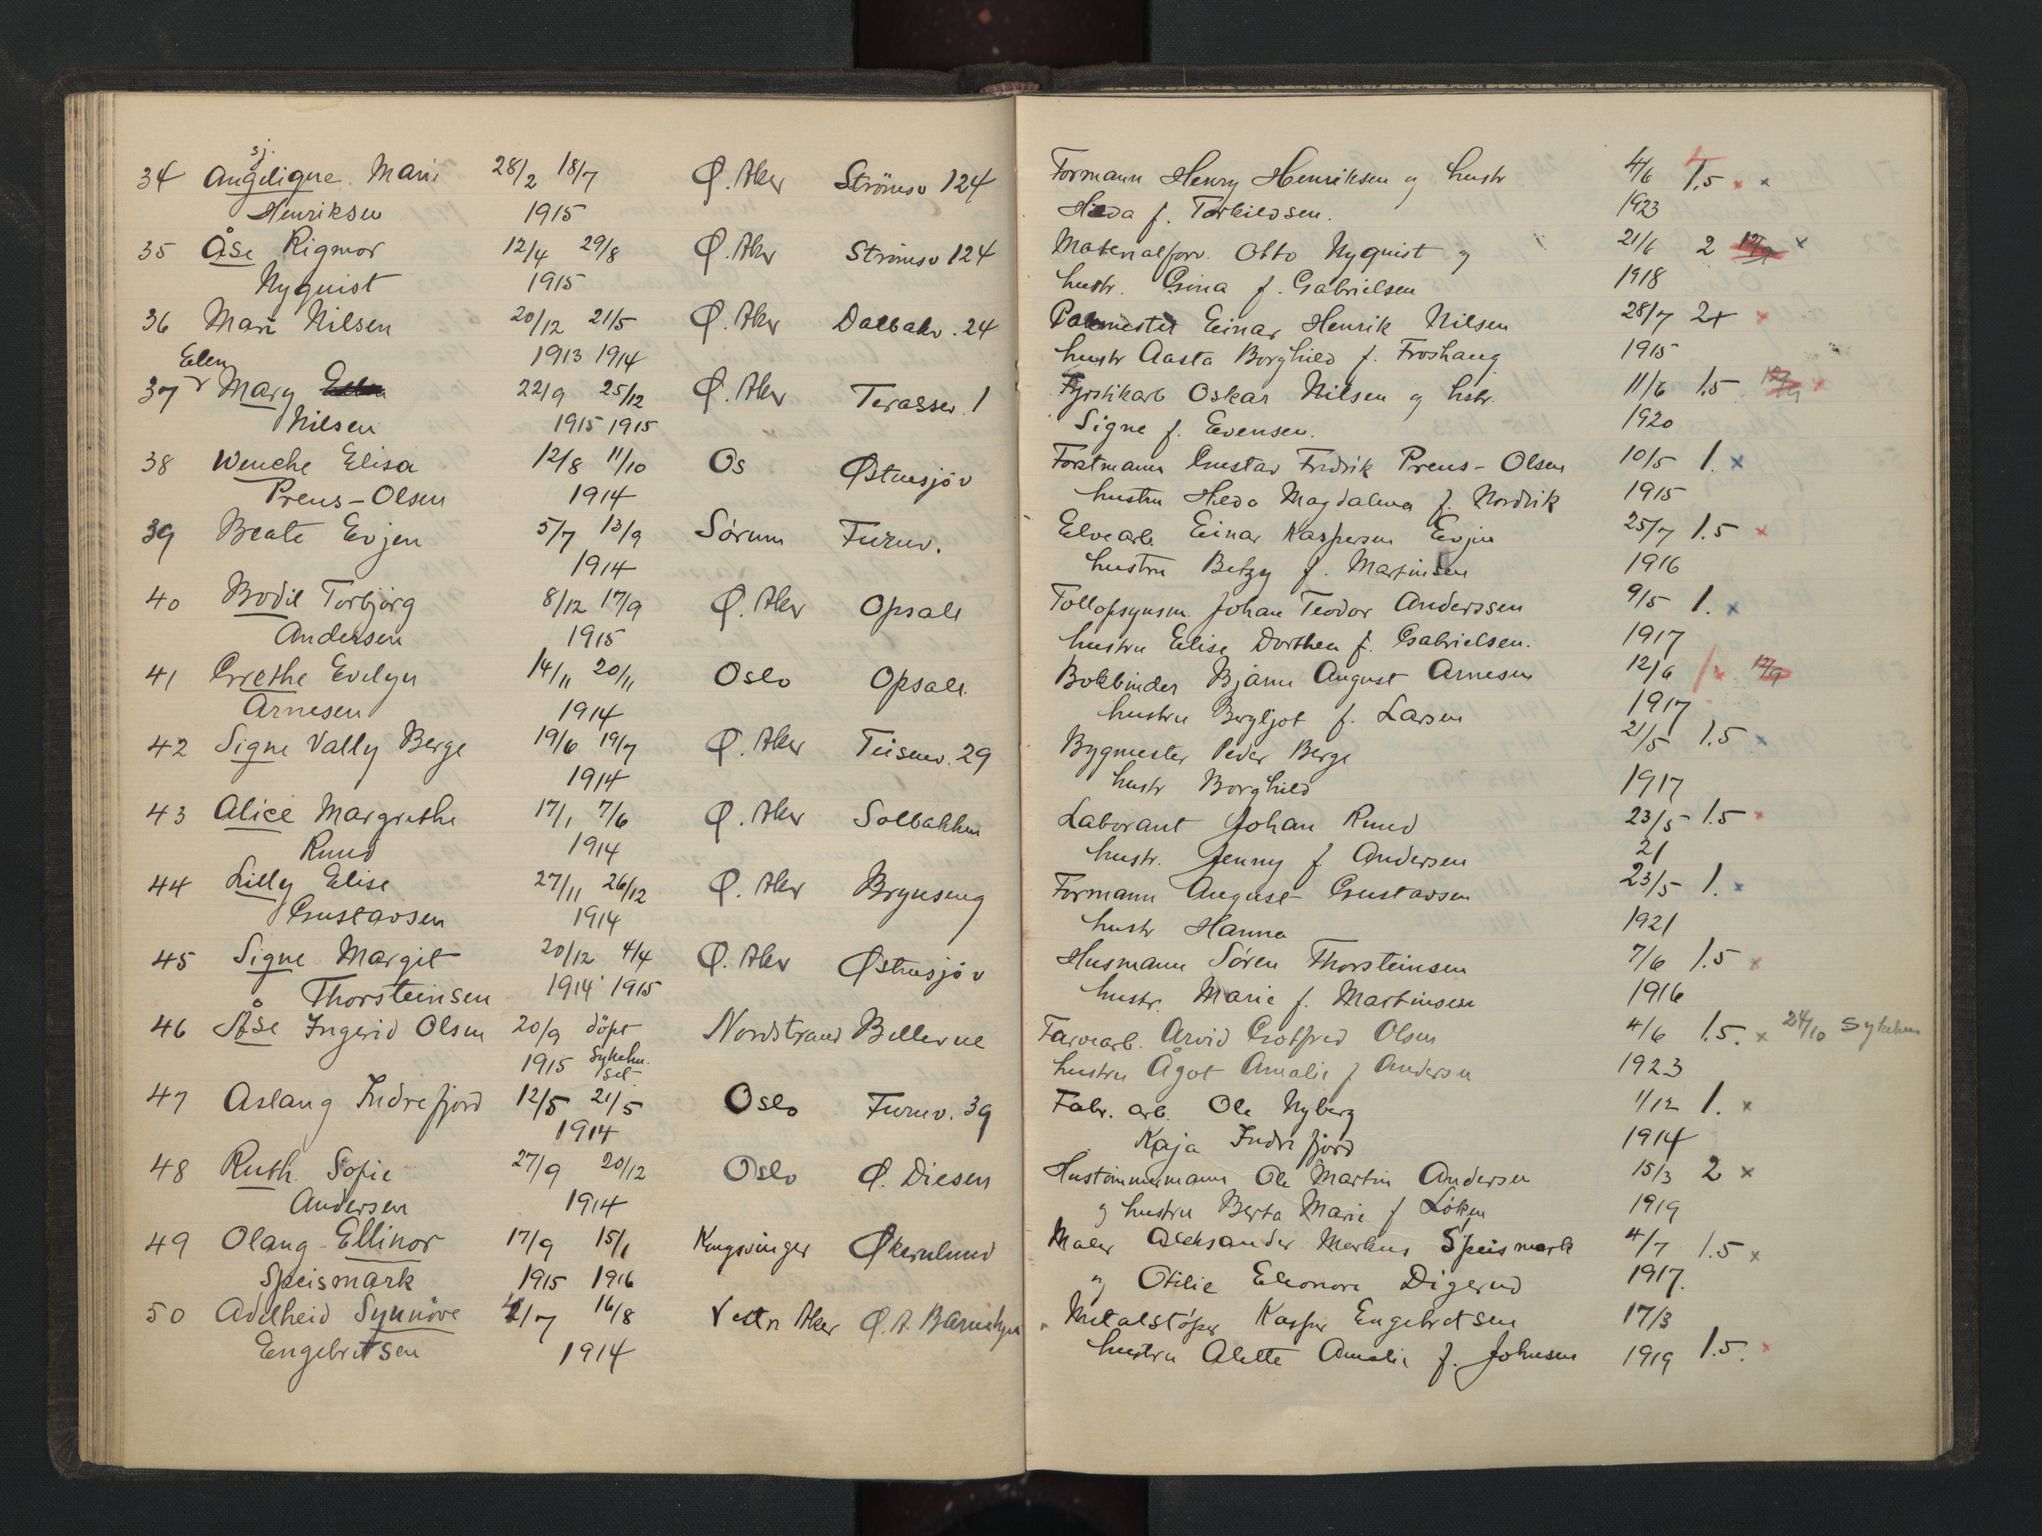 34 Angelique Marie 28/2 18/7 Ø. Aker Strömsv 124 Formann Henry Henriksen og hustr 4/6 1,5 x x
Henriksen 1915 f. Torkildsen. 1923
35 Åse Rigmor 12/4 29/8 Ø. Aker Strömsv 124 Materialforv. Otto Nyquist og 21/6 2 x
Nyquist 1915 hustr. Gina f. Gabrielsen 1918
36 Mari Nilsen 20/12 21/5 Ø. Aker Dalbakv. 24 Einar Henrik Nilsen 28/7 2+ x
1913 1914 hustr Aasta Borghild f. Froshaug 1915
Elen
37 Mary 22/9 25/12 Ø. Aker Terassev. 1 Fyrstikarb Oskar Nilsen og hstr. 11/6 1.5 x
Nilsen 1915 1915 Signe f. Evensen. 1920
38 Wenche Elisa 12/8 11/10 Os Østnsjöv Forstmann Gustav Fredrik Preus-Olsen 10/5 1. x
Preus-Olsen 1914 hustru Hilda Magdalena f. Nordvik 1915
39 Beate Evjen 5/7 13/9 Sørum Furuv. Elvearb. Einar Kaspersen Evjen 25/7 1.5 x
1914 hustru Betzy f. Martinsen 1916
40 Bodil Torbjørg 8/12 17/9 Ø. Aker Opsal Tollopsynsm Johan Teodor Anderssen 9/5 1. x
Andersen 1915 hustru Elise Dorthea f. Gabrielsen. 1917
41 Grethe Evelyn 14/11 20/11 Oslo Opsal Bokbinder Bjarne August Arnesen 12/6 1 x 12/9
Arnesen 1914 hustru Bergljot f. Larsen 1917
42 Signe Vally Berge 19/6 19/7 Ø. Aker Teisenv. 29 Bygmester Peder Berge 21/5 1.5 x
1914 hustr Borghild 1917
43 Alice Margrethe 17/1 7/6 Ø. Aker Solbakken Laborant Johan Ruud 23/5 1.5 x
Ruud 1914 hustr. Jenny f Andersen 21
44 Lilly Elise 27/11 26/12 Ø. Aker Brynseng Formann August Gustavsen 23/5 1. x
Gustavsen 1914 hustr Hanna 1921
45 Signe Margit 20/12 4/4 Ø. Aker Østnsjöv Husmann Søren Thorsteinsen 7/6 1.5 x
Thorsteinsen 1914 1915 hustr. Marie f. Martinsen 1916
46 Åse Ingerid Olsen 20/9 döpt Nordstrand Bellevue Farvearb. Arvid Gotfred Olsen 4/6 1.5. x 24/10 Sykehus
1915 Sykehu. hustru Ågot Amalie f Andersen 1923
set
47 Aslaug Indrefjord 12/5 21/5 Oslo Furuv. 39 Fabr. arb. Ole Nyberg 1/12 1. x
1914 Kaja Indrefjord 1914
48 Ruth. Sofie 27/9 20/12 Oslo Ø. Diesen Hustömmermann Ole Martin Andersen 15/3 2 x
Andersen 1914 og hustru Berta Marie f Löken 1919
49 Olaug Ellinor 17/9 15/1 Kongsvinger Økernlund Maler Aleksander Markus Speismark 4/7 1.5 x
Speismark 1915 1916 og Otilie Eleonore Digerud 1917.
50 Adelheid Synnöve /7 16/8 Vestr Aker Ø. A. Barnehjem Metalstøper Kasper Engebretsen 17/3
Engebretsen 1914 hustru Alette Amalie f. Johnsen 1919 1.5. x